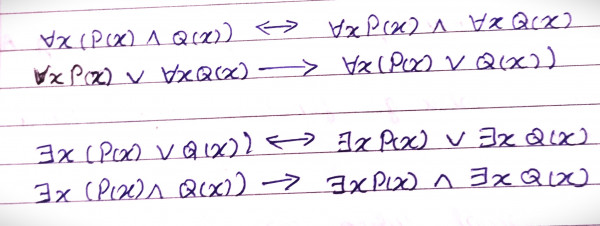 ∀x (P(x) ∧ Q(x)) ⟷ ∀x P(x) ∧ ∀x Q(x)
∀x P(x) ∨ ∀x Q(x) ⟶ ∀x (P(x) ∨ Q(x))
∃x (P(x) ∨ Q(x)) ⟷ ∃x P(x) ∨ ∃x Q(x)
∃x (P(x) ∧ Q(x)) → ∃x P(x) ∧ ∃x Q(x)